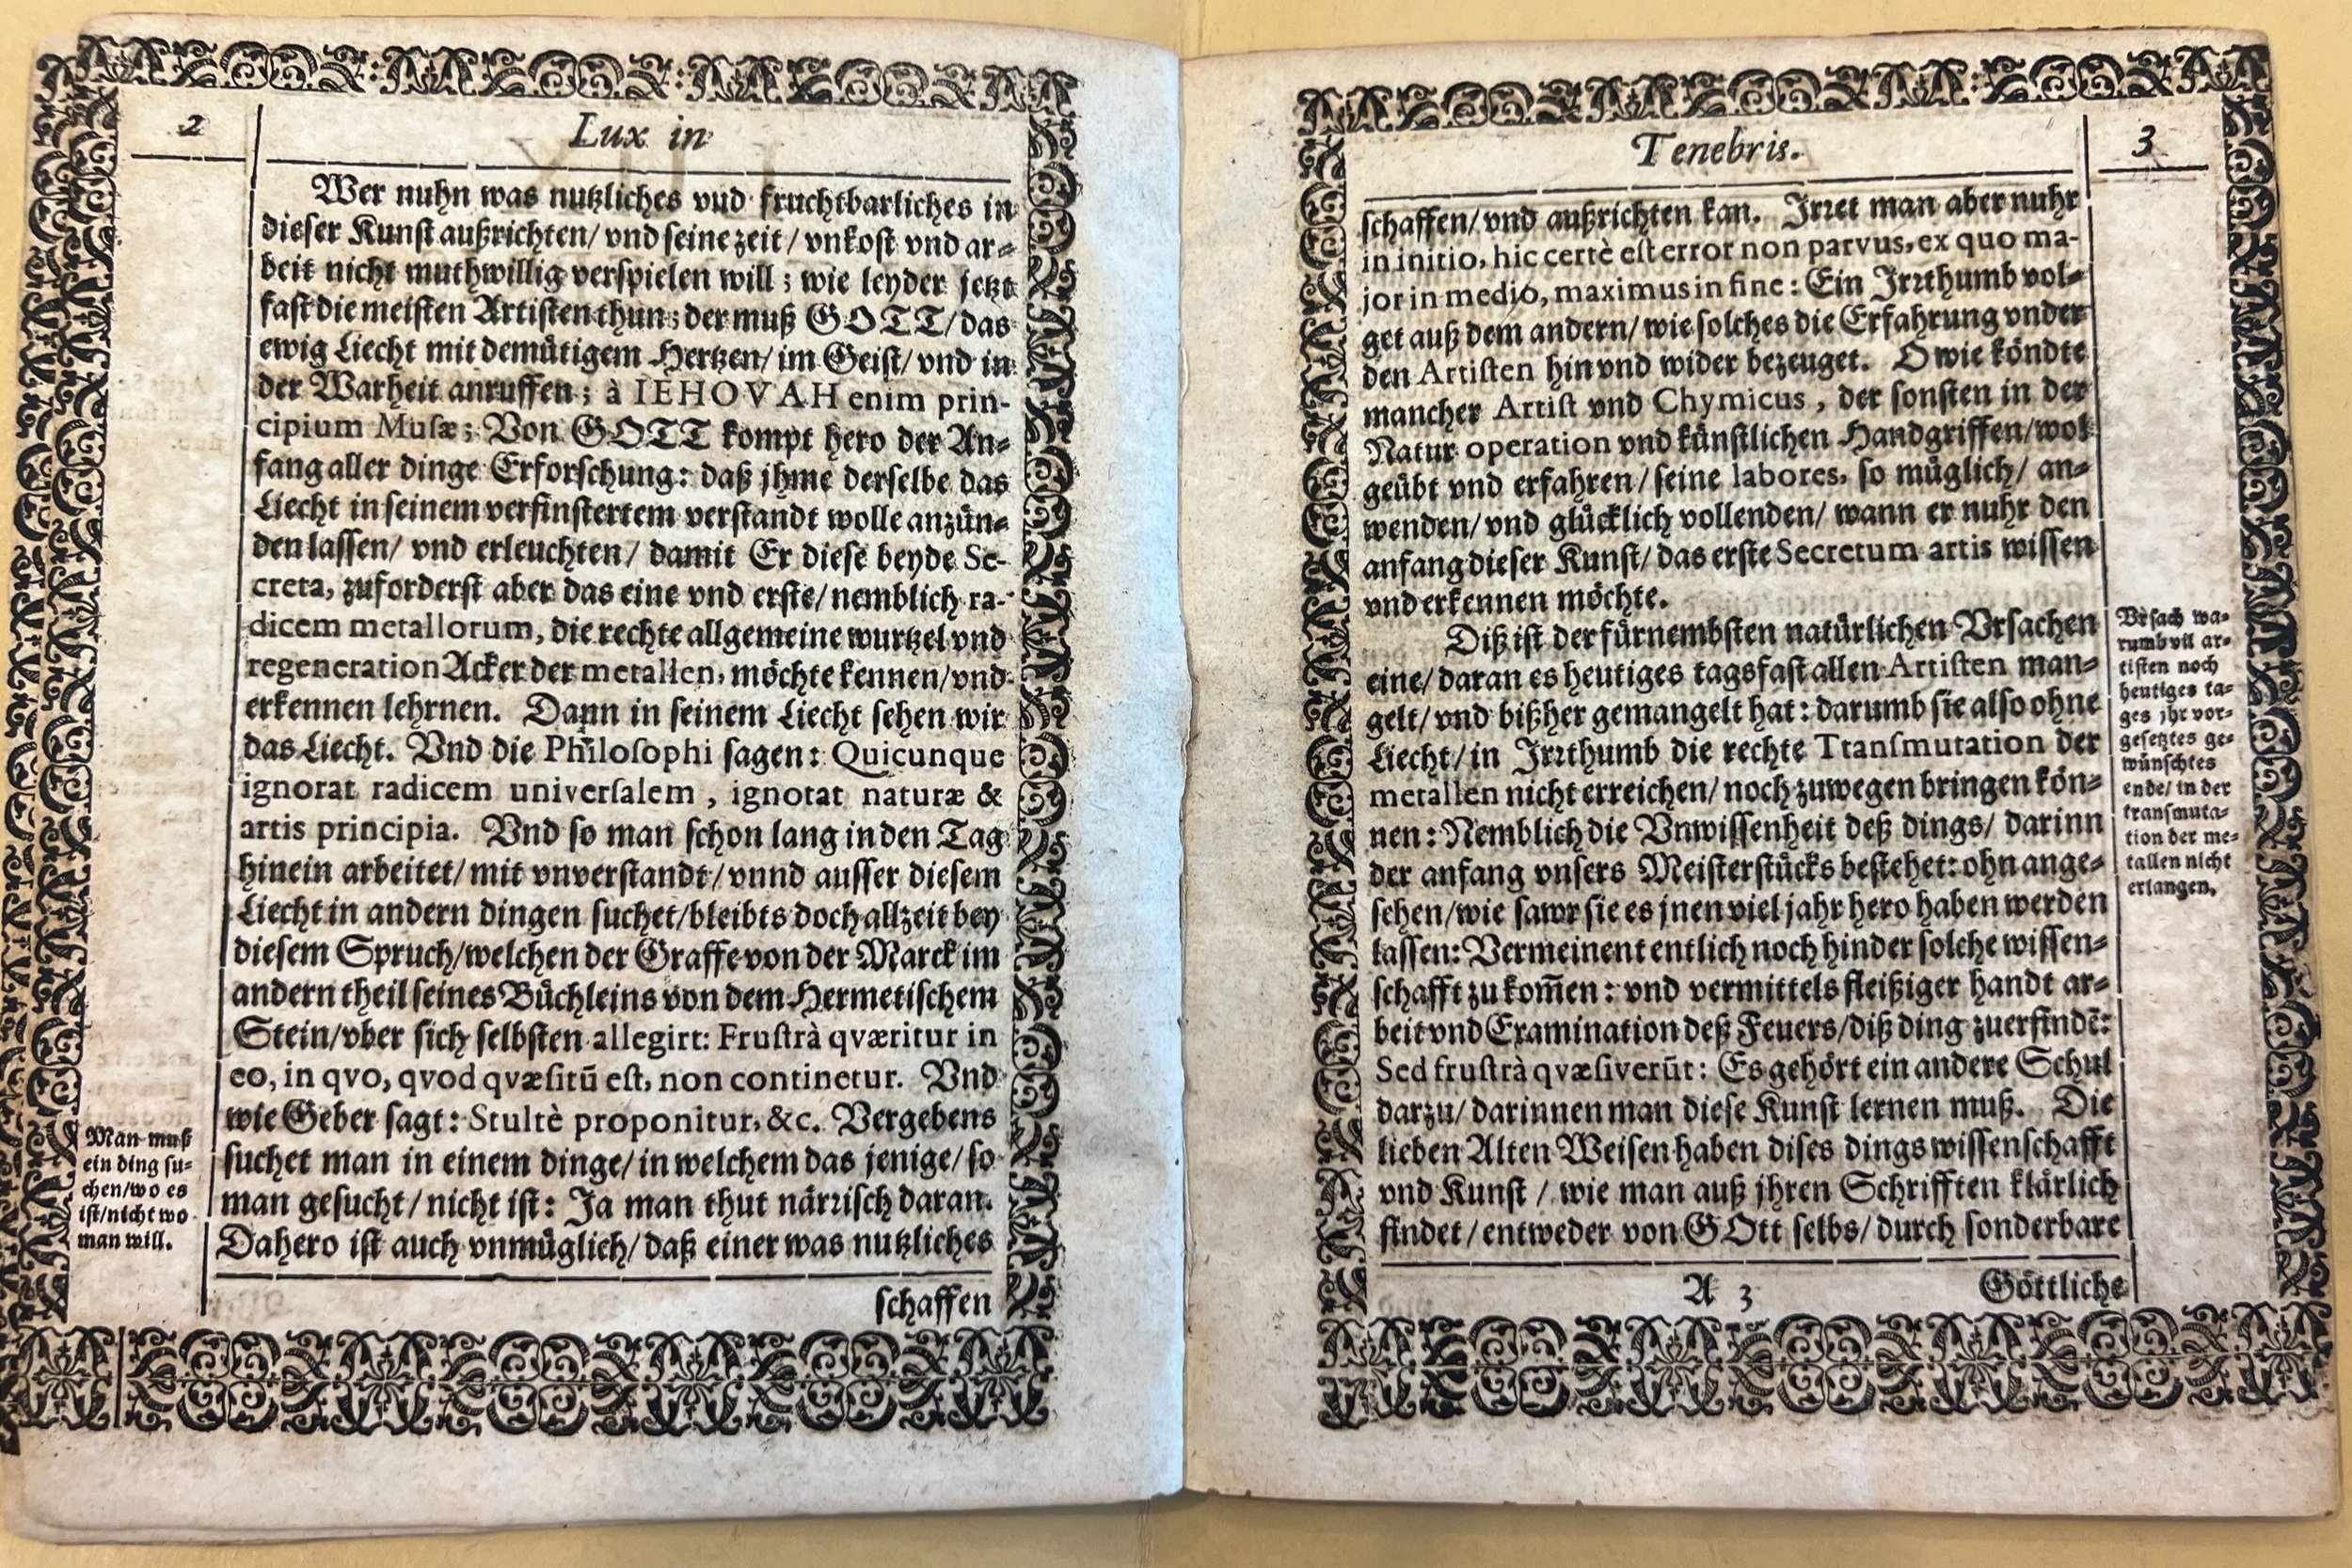 2
Lux in
Wer nuhn was nutzliches vnd fruchtbarliches in
dieser Kunst außrichten/ vnd seine zeit/ vnkost vnd ar-
beit nicht muthwillig verspielen will; wie leyder jetzt
fast die meisten Artisten thun; der muß GOTT/ das
ewig Liecht mit demütigem Hertzen/ im Geist/ vnd in
der Warheit anruffen; à IEHOVAH enim prin-
cipium Musæ; Von GOTT kompt hero der An-
fang aller dinge Erforschung: daß jhme derselbe das
Liecht in seinem verfinstertem verstandt wolle anzün-
den lassen/ vnd erleuchten/ damit Er diese beyde Se-
creta, zuforderst aber das eine vnd erste/ nemblich ra-
dicem metallorum, die rechte allgemeine wurtzel vnd
regeneration Acker der metallen, möchte kennen/ vnd
erkennen lehrnen. Dann in seinem Liecht sehen wir
das Liecht. Vnd die Philosophi sagen: Quicunque
ignorat radicem universalem, ignotat naturæ &
artis principia. Vnd so man schon lang in den Tag
hinein arbeitet/ mit vnverstandt/ vnnd ausser diesem
Liecht in andern dingen suchet/ bleibts doch allzeit bey
diesem Spruch/ welchen der Graffe von der Marck im
andern theil seines Büchleins von dem Hermetischem
Stein/ vber sich selbsten allegirt: Frustrà qværitur in
eo, in qvo, qvod qvæsitū est, non continetur. Vnd
wie Geber sagt: Stultè proponitur, &c. Vergebens
suchet man in einem dinge/ in welchem das jenige/ so
man gesucht/ nicht ist: Ja man thut närrisch daran.
Dahero ist auch vnmüglich/ daß einer was nutzliches
schaffen
Man muß
ein ding su-
chen/ wo es
ist/ nicht wo
man will.
Tenebris.
3
schaffen/ vnd außrichten kan. Irret man aber nuhr
in initio, hic certè est error non parvus, ex quo ma-
jor in medio, maximus in fine: Ein Irrthumb vol-
get auß dem andern/ wie solches die Erfahrung vnder
den Artisten hin vnd wider bezeuget. O wie köndte
mancher Artist vnd Chymicus, der sonsten in der
Natur operation vnd künstlichen Handgriffen/ wol
geübt vnd erfahren/ seine labores, so müglich/ an-
wenden/ vnd glücklich vollenden/ wann er nuhr den
anfang dieser Kunst/ das erste Secretum artis wissen
vnd erkennen möchte.
Diß ist der fürnembsten natürlichen Vrsachen
eine/ daran es heutiges tags fast allen Artisten man-
gelt/ vnd bißher gemangelt hat: darumb sie also ohne
Liecht/ in Irrthumb die rechte Ttansmutation der
metallen nicht erreichen/ noch zuwegen bringen kön-
nen: Nemblich die Vnwissenheit deß dings/ darinn
der anfang vnsers Meisterstücks bestehet: ohn ange-
sehen/ wie sawr sie es jnen viel jahr hero haben werden
lassen: Vermeinent entlich noch hinder solche wissen-
schafft zu kom̄en: vnd vermittels fleißiger handt ar-
beit vnd Examination deß Feuers/ diß ding zuerfindē:
Sed frustrà qvæsiverūt: Es gehört ein andere Schul
darzu/ darinnen man diese Kunst lernen muß. Die
lieben Alten Weisen haben dises dings wissenschafft
vnd Kunst/ wie man auß jhren Schrifften klärlich
findet/ entweder von GOtt selbs/ durch sonderbare
A 3
Göttliche
Vrsach wa-
rumb vil ar-
tisten noch
heutiges ta-
ges jhr vor-
gesetztes ge-
wünschtes
ende/ in der
transmuta-
tion der me-
tallen nicht
erlangen.